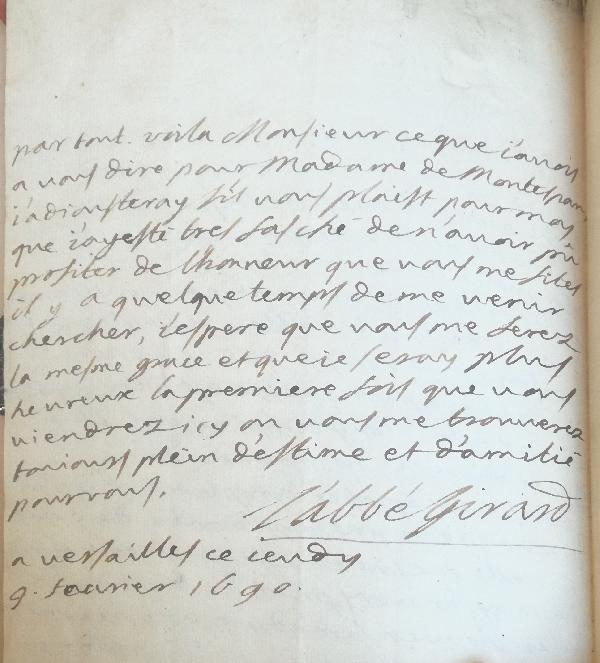 par tout. voila Monsieur ce que i'avois
a vous dire pour Madame de Montespan
i'adiousteray s'il vous plaist pour moy
que i'ay esté tres fasché de n'avoir pû
profiter de l'honneur que vous me fites
il y a quelque temps de me venir
chercher, i'espere que vous me ferez
la mesme grace et que ie seray plus
heureux la premiere fois que vous
viendrez icy ou vous me trouverez
toujours plein d'estime et d'amitié
pour vous.
L'abbé Girard
a versailles ce ieudy
9. fevrier 1690.